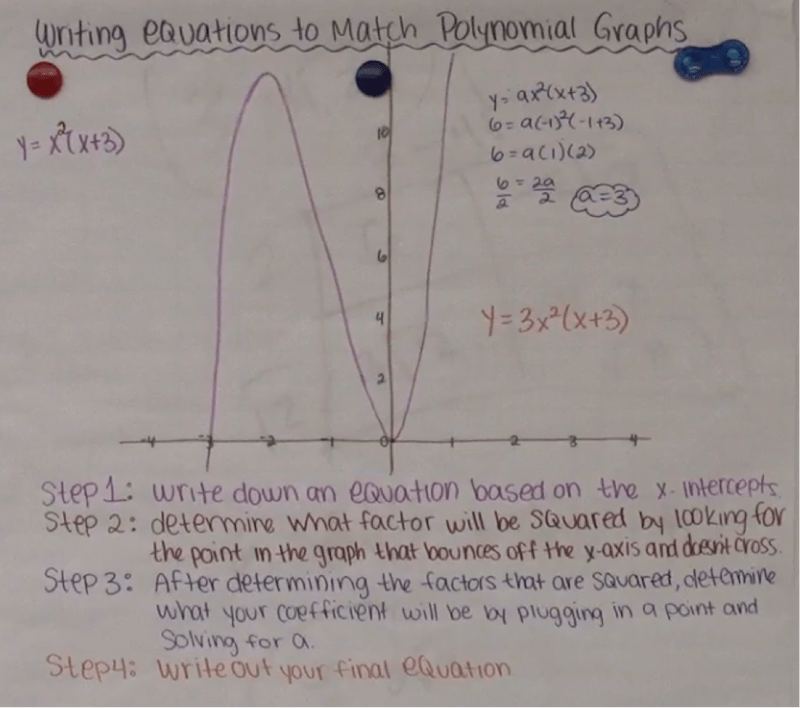 Writing equations to Match Polynomial Graphs
y = x²(x+3)
y = ax²(x+3)
6 = a(-1)²(-1+3)
6 = a(1)(2)
6/2 = 2a/2 a=3
y = 3x²(x+3)
10
8
6
4
2
-4 -3 -2 -1 0 1 2 3 4
Step 1: write down an equation based on the x-intercepts.
Step 2: determine what factor will be squared by looking for
the point in the graph that bounces off the x-axis and doesn't cross.
Step 3: After determining the factors that are squared, determine
what your coefficient will be by plugging in a point and
solving for a.
Step 4: write out your final equation